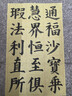 通福沙寶乘
慧界恒至俱
瑕法利直所